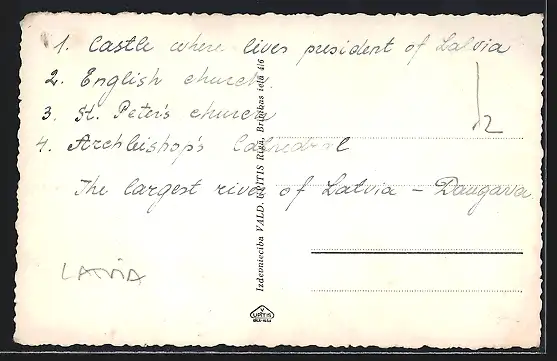 1. Castle where lives president of Latvia
2. English church.
3. St. Peter's church
4. Archbishop's Cathedral
The largest river of Latvia - Daugava
LATVIA
Izdevniecība VALD. URTIS Rīgā, Brīvības ielā 4/6
URTIS